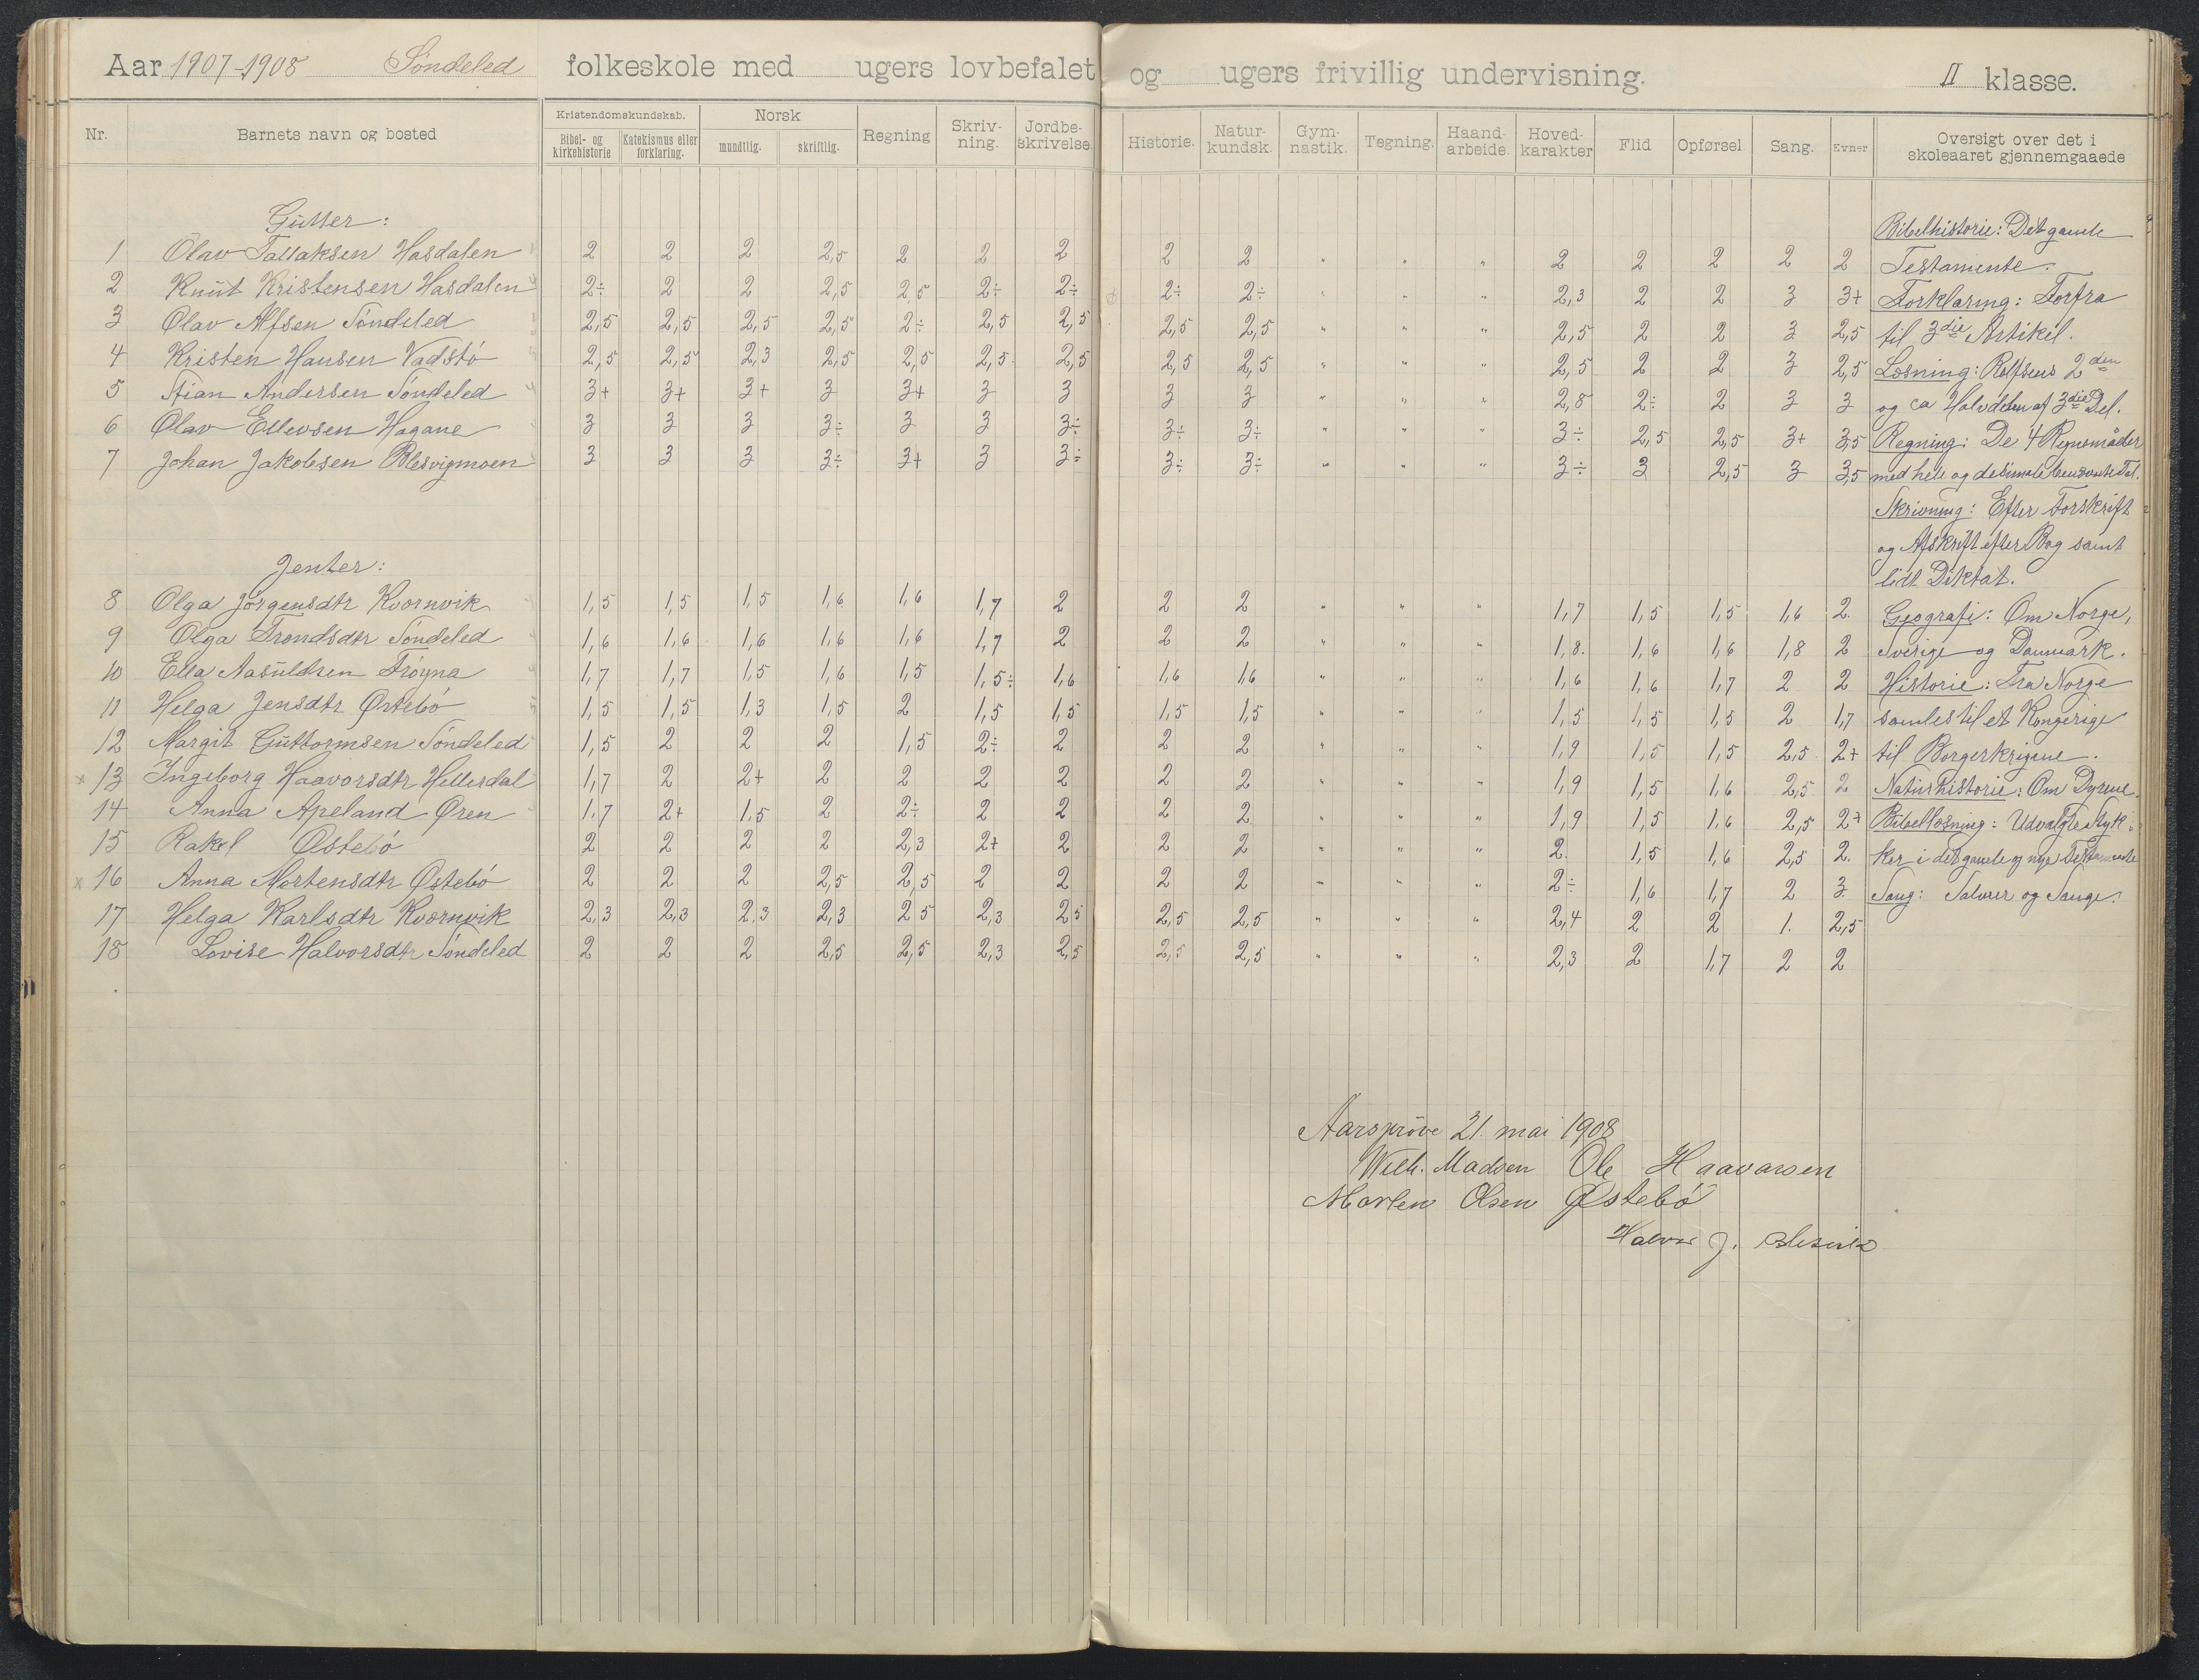 Aar 1907-1908 Søndeled folkeskole med ugers lovbefalet og ugers frivillig undervisning. II klasse.
Nr. Barnets navn og bosted Kristendomskundskab. Bibel- og kirkehistorie Katekismus eller forklaring. Norsk mundtlig. skriftlig. Regning Skriv-ning. Jordbe-skrivelse. Historie. Natur-kundsk. Gym-nastik. Tegning. Haand-arbeide. Hoved-karakter Flid Opførsel Sang. Evner Oversigt over det i skoleaaret gjennemgaaede
Gutter:
1 Olav Tallaksen Hasdalen 2 2 2 2,5 2 2 2 2 2 " " " 2 2 2 2 2
2 Knut Kristensen Hasdalen 2÷ 2 2 2,5 2,5 2÷ 2÷ 2÷ 2÷ " " " 2,3 2 2 3 3+
3 Olav Alfsen Søndeled 2,5 2,5 2,5 2,5 2÷ 2,5 2,5 2,5 2,5 " " " 2,5 2 2 3 2,5
4 Kristen Hansen Vadstø 2,5 2,5 2,3 2,5 2,5 2,5 2,5 2,5 2,5 " " " 2,5 2 2 3 2,5
5 Stian Andersen Søndeled 3+ 3+ 3+ 3 3+ 3 3 3 3 " " " 2,8 2÷ 2 3 3
6 Olav Ellevsen Hagane 3 3 3 3÷ 3 3 3÷ 3÷ 3÷ " " " 3÷ 2,5 2,5 3+ 3,5
7 Johan Jakobsen Blesvigmoen 3 3 3 3÷ 3+ 3 3÷ 3÷ 3÷ " " " 3÷ 3 2,5 3 3,5
Jenter:
8 Olga Jørgensdtr Kvornvik 1,5 1,5 1,5 1,6 1,6 1,7 2 2 2 " " " 1,7 1,5 1,5 1,6 2.
9 Olga Trondsdtr Søndeled 1,6 1,6 1,6 1,6 1,6 1,7 2 2 2 " " " 1,8. 1,6 1,6 1,8 2
10 Ella Aasuldsen Frøyna 1,7 1,7 1,5 1,6 1,5 1,5÷ 1,6 1,6 1,6 " " " 1,6 1,6 1,7 2 2
11 Helga Jensdtr Østebø 1,5 1,5 1,3 1,5 2 1,5 1,5 1,5 1,5 " " " 1,5 1,5 1,5 2 1,7
12 Margit Guttormsen Søndeled 1,5 2 2 2 1,5 2÷ 2 2 2 " " " 1,9 1,5 1,5 2,5 2+
x 13 Ingeborg Haavorsdtr Hellesdal 1,7 2 2+ 2 2 2 2 2 2 " " " 1,9 1,5 1,6 2,5 2
14 Anna Apeland Øren 1,7 2+ 1,5 2 2÷ 2 2 2 2 " " " 1,9 1,5 1,6 2,5 2+
15 Rakel Østebø 2 2 2 2 2,3 2+ 2 2 2 " " " 2. 1,5 1,6 2,5 2.
x 16 Anna Mortensdtr Østebø 2 2 2 2,5 2,5 2 2 2 2 " " " 2÷ 1,6 1,7 2 3
17 Helga Karlsdtr Kvornvik 2,3 2,3 2,3 2,3 2,5 2,3 2,5 2,5 2,5 " " " 2,4 2 2 1. 2,5
18 Lovise Halvorsdtr Søndeled 2 2 2 2,5 2,5 2,3 2,5 2,5 2,5 " " " 2,3 2 1,7 2 2
Bibelhistorie: Det gamle
Testamente.
Forklaring: Forfra
til 3die Artikel.
Læsning: Rolfsens 2den
og ca Halvdelen af 3die Del.
Regning: De 4 Regnemåder
med hele og desimale benævnte Tal.
Skrivning: Efter Forskrift
og Afskrift efter Bog samt
lidt Diktat.
Geografi: Om Norge,
Sverige og Danmark.
Historie: Fra Norge
samles til et Kongerige
til Borgerkrigene.
Naturhistorie: Om Dyrene.
Bibellæsning: Udvalgte Styk-
ker i det gamle og nye Testamente
Sang: Salmer og Sange.
Aarsprøve 21. mai 1908
Wilh. Madsen Ole Haavorsen
Morten Olsen Østebø
Halvor J. Blesvik